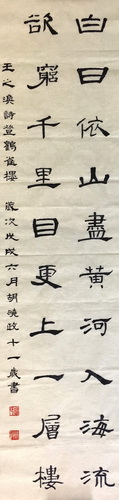 白日依山盡黃河入海流
欲窮千里目更上一層樓
王之渙詩登鶴雀樓 歲次戊戌六月胡曉政十一歲書